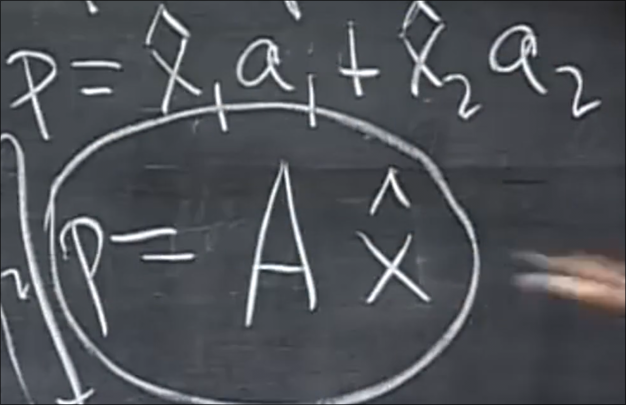 p = x̂₁a₁ + x̂₂a₂
p = Ax̂